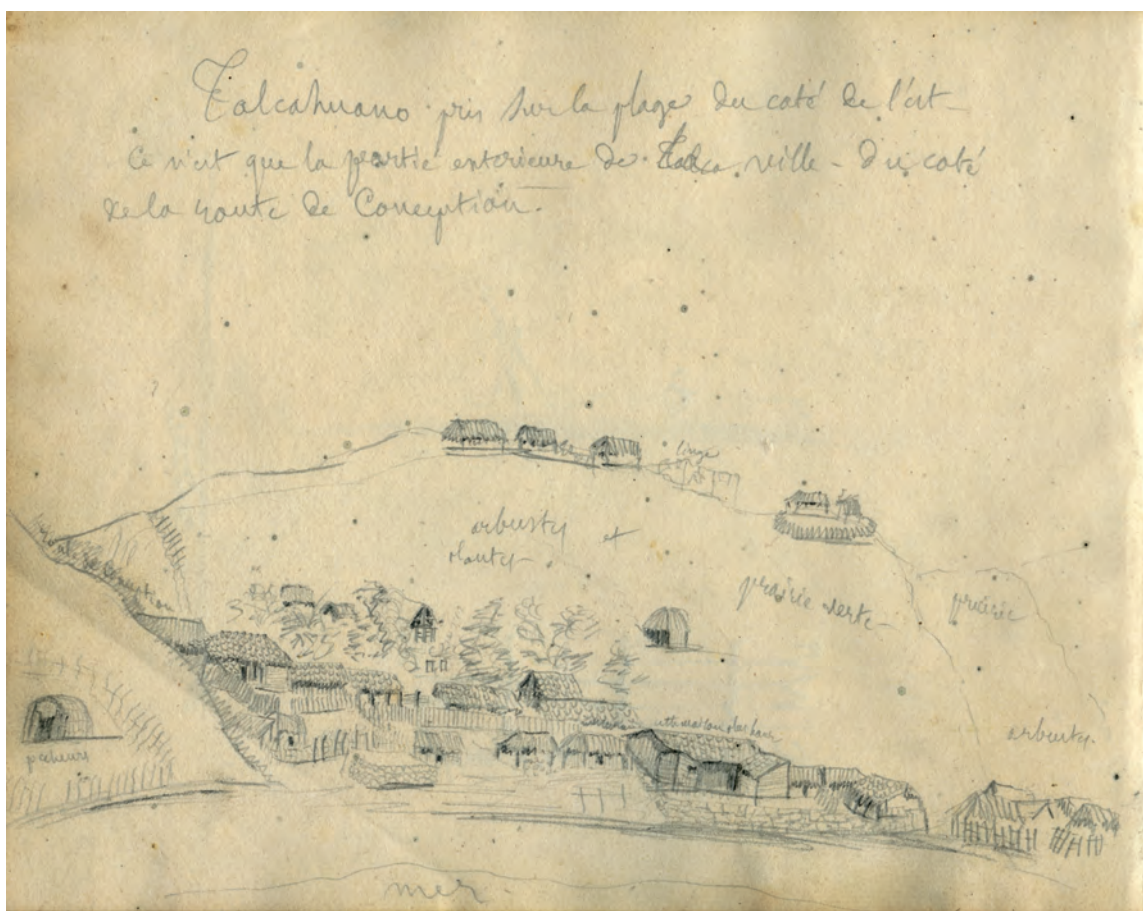 Talcahuano pris sur la plage du coté de l'est
Ce n'est que la partie exterieure de ville - du coté
de la route de Conception.
linge
arbustes et
plantes
prairie verte
prairie
Conception
arbustes
pecheurs
mer